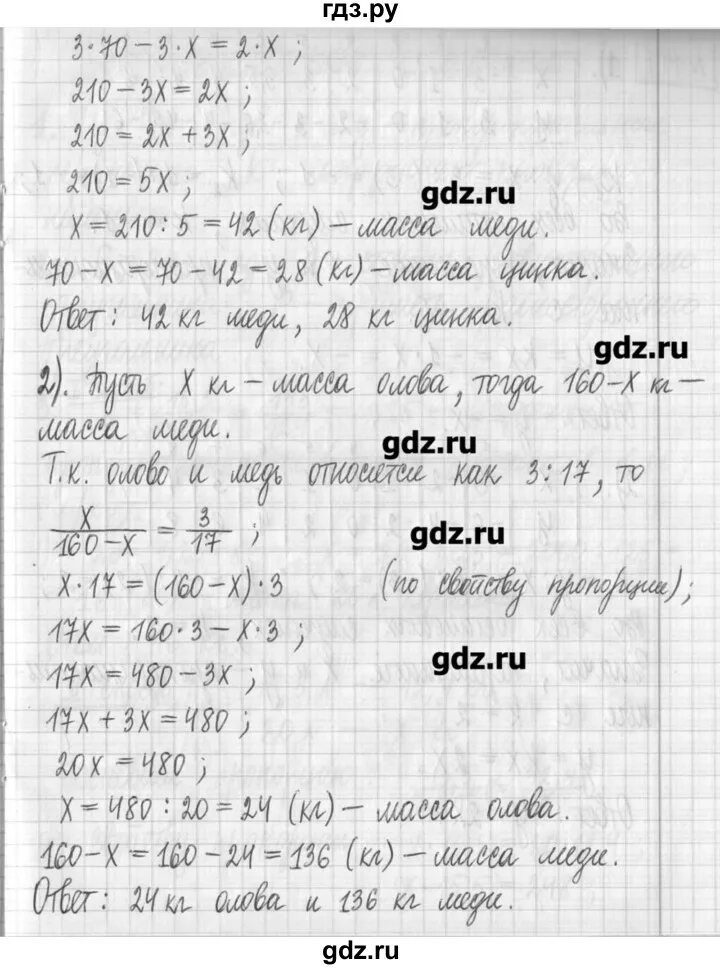 гдз.ру
3·70-3·x=2·x;
210-3x=2x;
210=2x+3x;
210=5x;
gdz.ru
x=210:5=42(кг)-масса меди.
70-x=70-42=28(кг)-масса цинка.
Ответ: 42 кг меди, 28 кг цинка.
gdz.ru
2). Пусть x кг - масса олова, тогда 160-x кг -
масса меди.
gdz.ru
Т.к. олово и медь относятся как 3:17, то
x/160-x = 3/17;
gdz.ru
x·17=(160-x)·3 (по свойству пропорции);
17x=160·3-x·3;
gdz.ru
17x=480-3x;
17x+3x=480;
20x=480;
x=480:20=24 (кг)-масса олова.
160-x=160-24=136 (кг)-масса меди.
Ответ: 24 кг олова и 136 кг меди.
gdz.ru